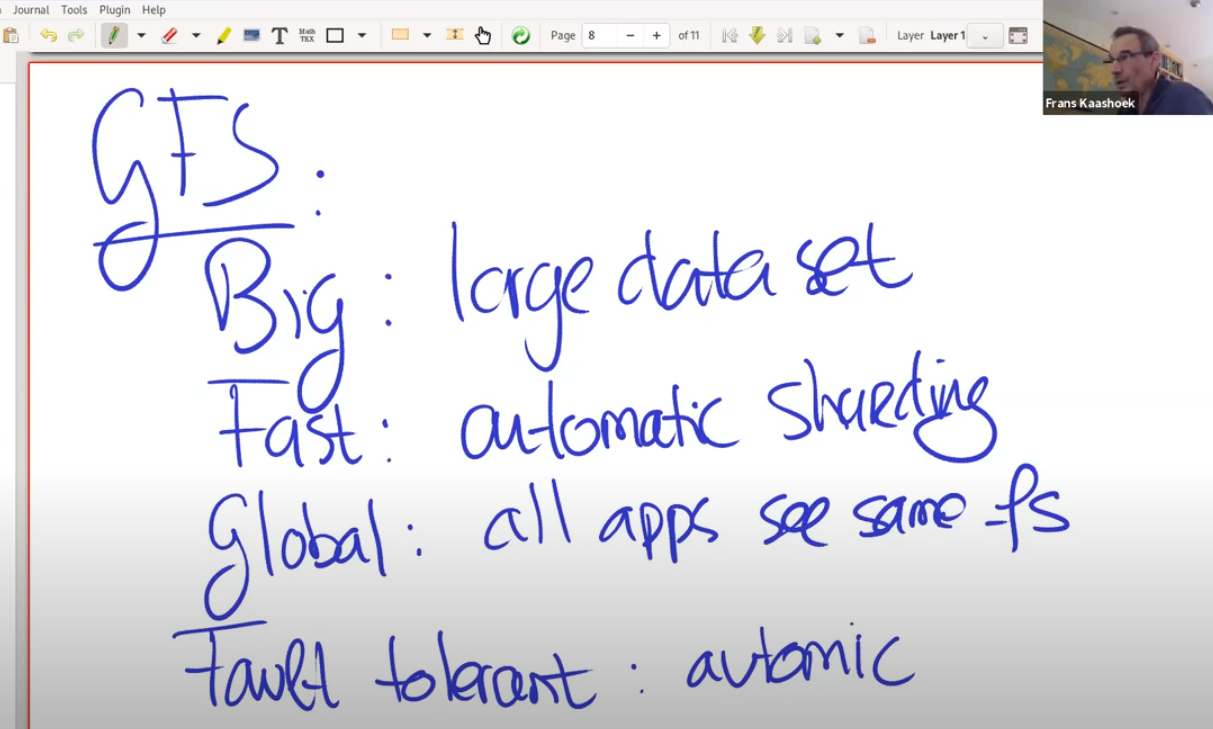 Journal Tools Plugin Help
Page 8 of 11 Layer Layer 1
Frans Kaashoek
GFS:
Big: large data set
Fast: automatic sharding
Global: all apps see same fs
Fault tolerant: automic